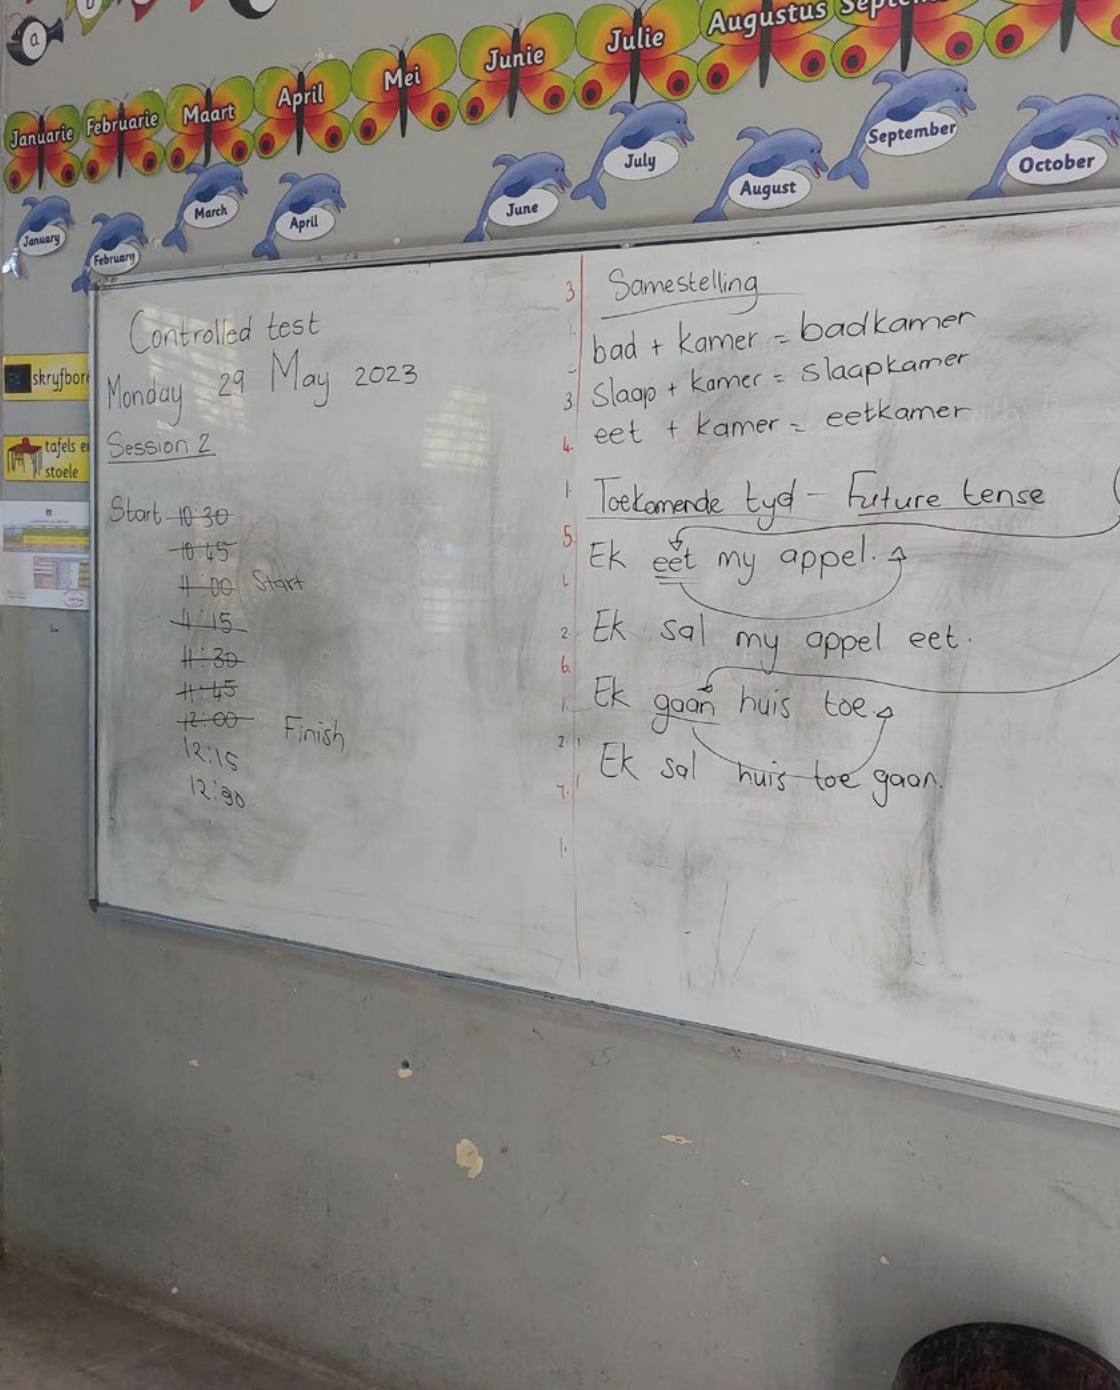 a
Januarie
Februarie
Maart
April
Mei
Junie
Julie
Augustus
January
February
March
April
June
July
August
September
October
skryfbor
tafels e
stoele
Controlled test
Monday 29 May 2023
Session 2
Start 10:30
10:45
11:00 Start
11:15
11:30
11:45
12:00 Finish
12:15
12:30
3
1.
3
4.
1.
5.
1.
2.
6.
1.
2.
7.
1.
Samestelling
bad + kamer = badkamer
Slaap + kamer = slaapkamer
eet + kamer = eetkamer
Toekomende tyd - Future tense
Ek eet my appel.
Ek sal my appel eet.
Ek gaan huis toe.
Ek sal huis toe gaan.